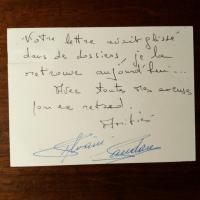 Votre lettre avait glissé
dans des dossiers, je la
retrouve aujourd'hui...
Avec toutes mes excuses
pour ce retard.
Amitiés
Sylvain Saudan